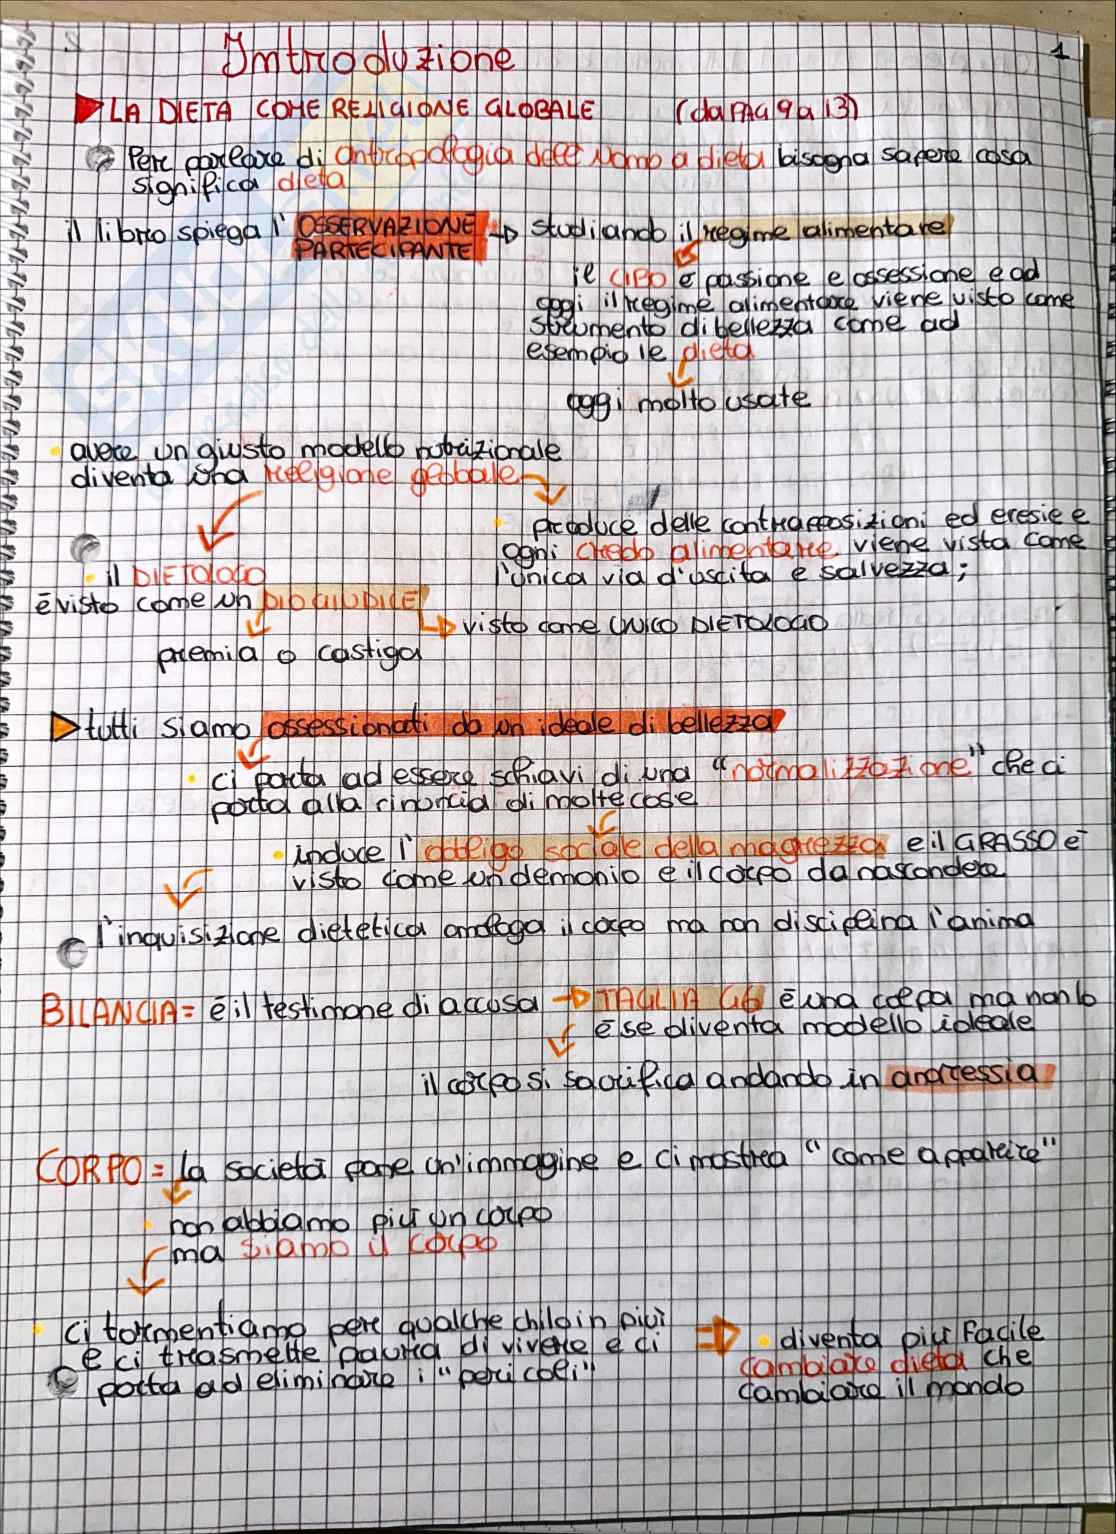 Introduzione
1
LA DIETA COME RELIGIONE GLOBALE (da PAG 9 a 13)
Per parlare di antropologia dell'uomo a dieta bisogna sapere cosa
significa dieta
il libro spiega l'OSSERVAZIONE PARTECIPANTE → studiando il regime alimentare
il CIBO è passione e ossessione e ad
oggi il regime alimentare viene visto come
strumento di bellezza come ad
esempio le dieta
oggi molto usate
avere un giusto modello nutrizionale
diventa una religione globale
produce delle contrapposizioni ed eresie e
ogni credo alimentare viene vista come
l'unica via d'uscita e salvezza;
il DIETOLOGO
è visto come un DIO GIUDICE
visto come UNICO DIETOLOGO
premia o castiga
tutti siamo ossessionati da un ideale di bellezza
ci porta ad essere schiavi di una "normalizzazione" che ci
porta alla rinuncia di molte cose
induce l'obbligo sociale della magrezza e il GRASSO è
visto come un demonio e il corpo da nascondere
l'inquisizione dietetica omologa il corpo ma non disciplina l'anima
BILANCIA = è il testimone di accusa → TAGLIA 46 è una colpa ma non lo
è se diventa modello ideale
il corpo si sacrifica andando in anoressia
CORPO = la società pone un'immagine e ci mostra "come apparire"
non abbiamo più un corpo
ma siamo il corpo
ci tormentiamo per qualche chilo in più
e ci trasmette paura di vivere e ci
porta ad eliminare i "pericoli"
diventa più facile
cambiare dieta che
cambiare il mondo